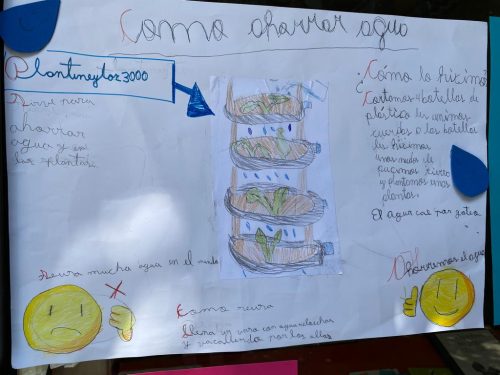 Como ahorrar agua
Plantineytor3000
Sirve para
ahorrar
agua y en
las plantas.
¿Cómo lo hicimos
Cortamos 4 botellas de
plástico les unimos
cuerdas a las botellas
les hicimos
unos nudos le
pusimos tierra
y plantamos unas
plantas.
El agua cae por goteo
mucha agua en el mundo
Ahorremos el agua
Como
Llena un vaso con agua
y por las